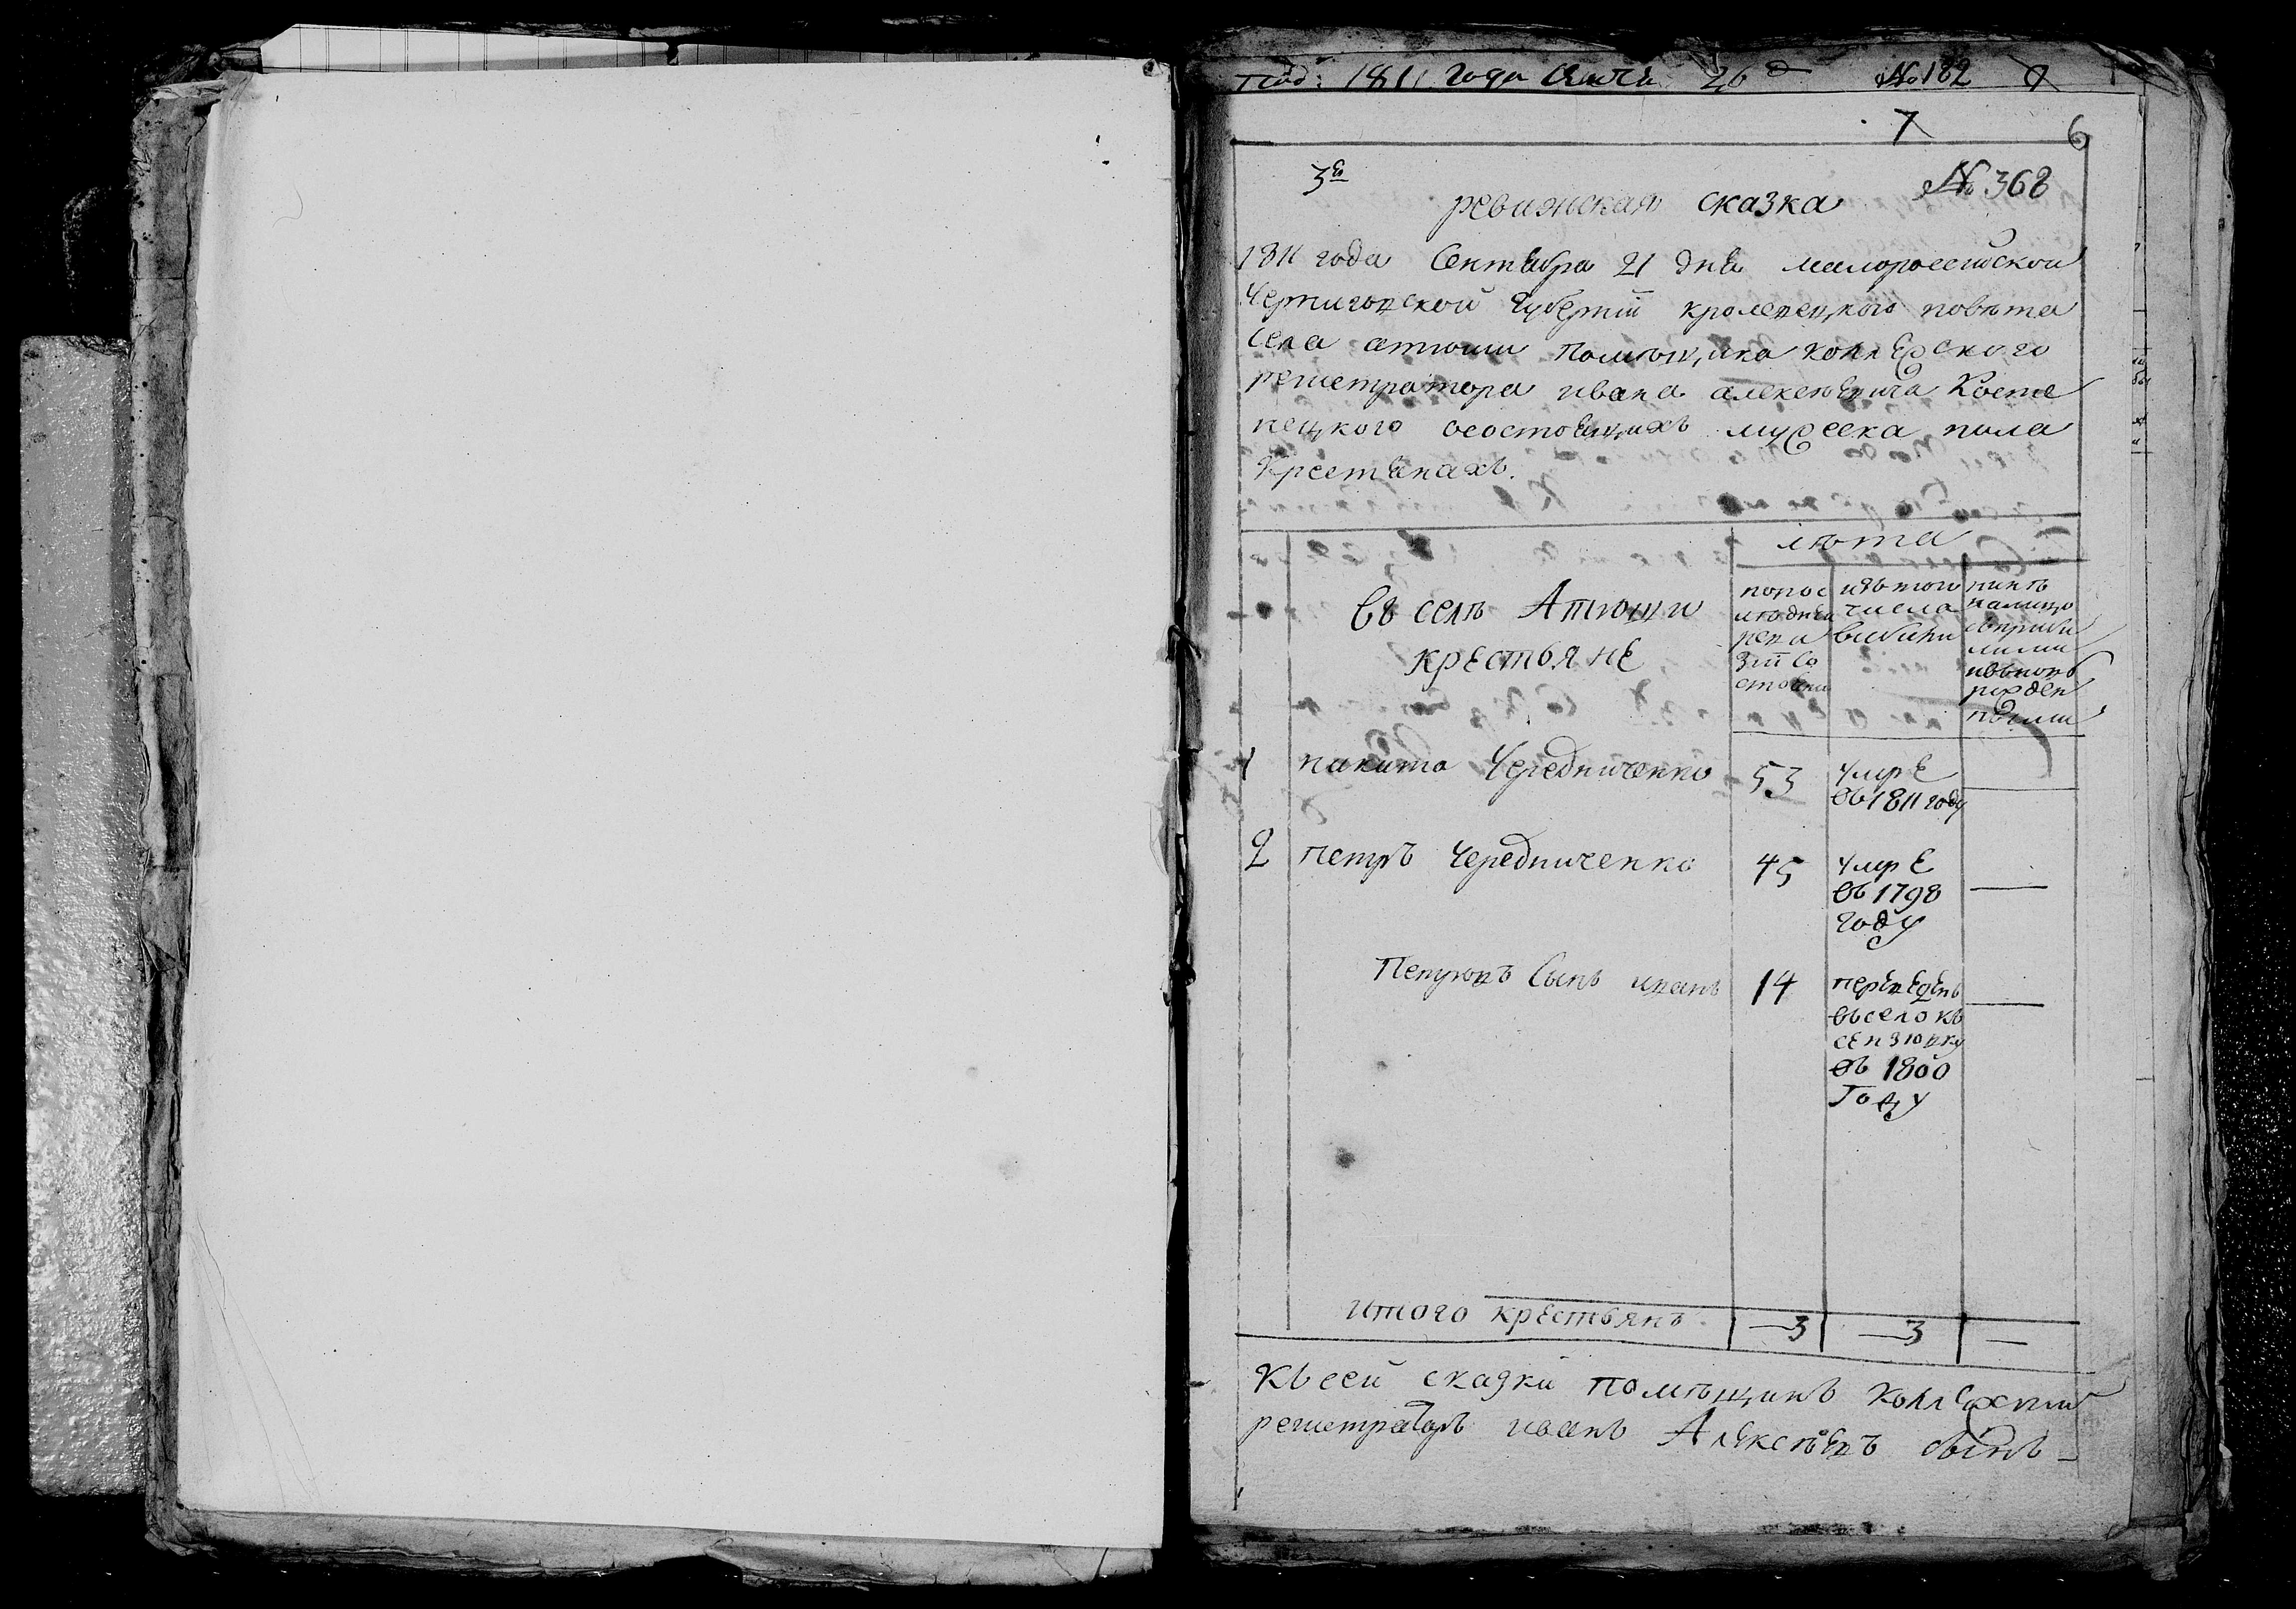 под: 1811 года 26 № 182
7 6
3я № 368
ревижская сказка
1811 года Сентября 21 дня малороссийской
Черниговской Губернїи кролевецкого повѣта
села атюши помѣщика коллежского
регистратора ивана алексѣевича Косте
нецкого осостоящихъ мужеска пола
крестянахъ.
лѣта
въ селѣ Атюши
крестьяне
попос
лѣдней
реви
зїи со
стояли
изътого
числа
выбыли
нинѣ
налицо
сприбы
лыми
ивьновь
рожден
ными
1 никита Чередниченко 53 умре
въ 1811 году —
2 петръ Чередниченко 45 умре
въ 1798
году —
Петровъ Сынъ иванъ 14 переведенъ
въсело кь
сензювку
въ 1800
Году —
итого крестьянъ — 3 — 3 —
Къ сей сказки помѣщикъ коллежский
регистраторъ иванъ Алексѣевъ сынъ –